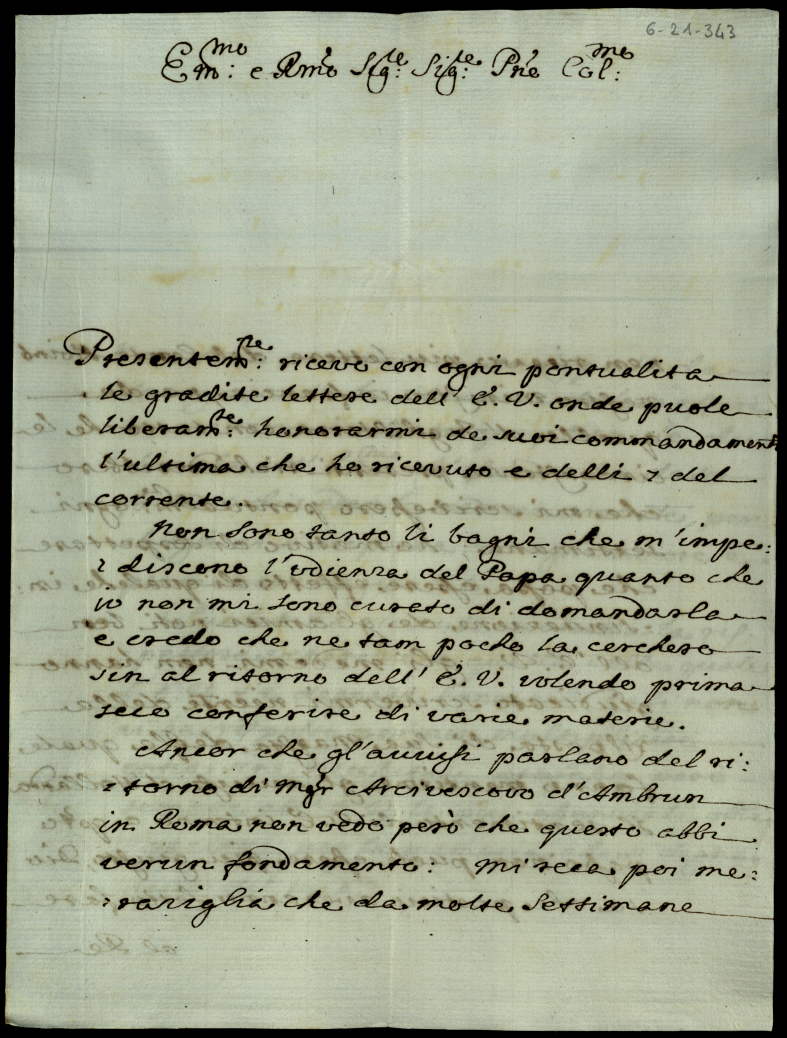 6-21-343
Em:mo e Rmo Sig:re Sig:re Pne Col:mo
Presentem:te ricevo con ogni pontualita
le gradite lettere dell' E. V. onde puole
liberam:te honorarmi de suoi commandamenti
l'ultima che ho ricevuto e delli 7 del
corrente.
Non sono tanto li bagni che m'impe:
:discono l'udienza del Papa quanto che
io non mi sono curato di domandarla
e credo che ne tam pocho la cerchero
sin al ritorno dell' E. V. volendo prima
seco conferire di varie materie.
Ancor che gl'auuisi parlano del ri:
:torno di Mgr Arcivescovo d'Ambrun
in Roma non vedo però che questo abbi
verun fondamento: mi reca poi me:
:raviglia che da molte settimane